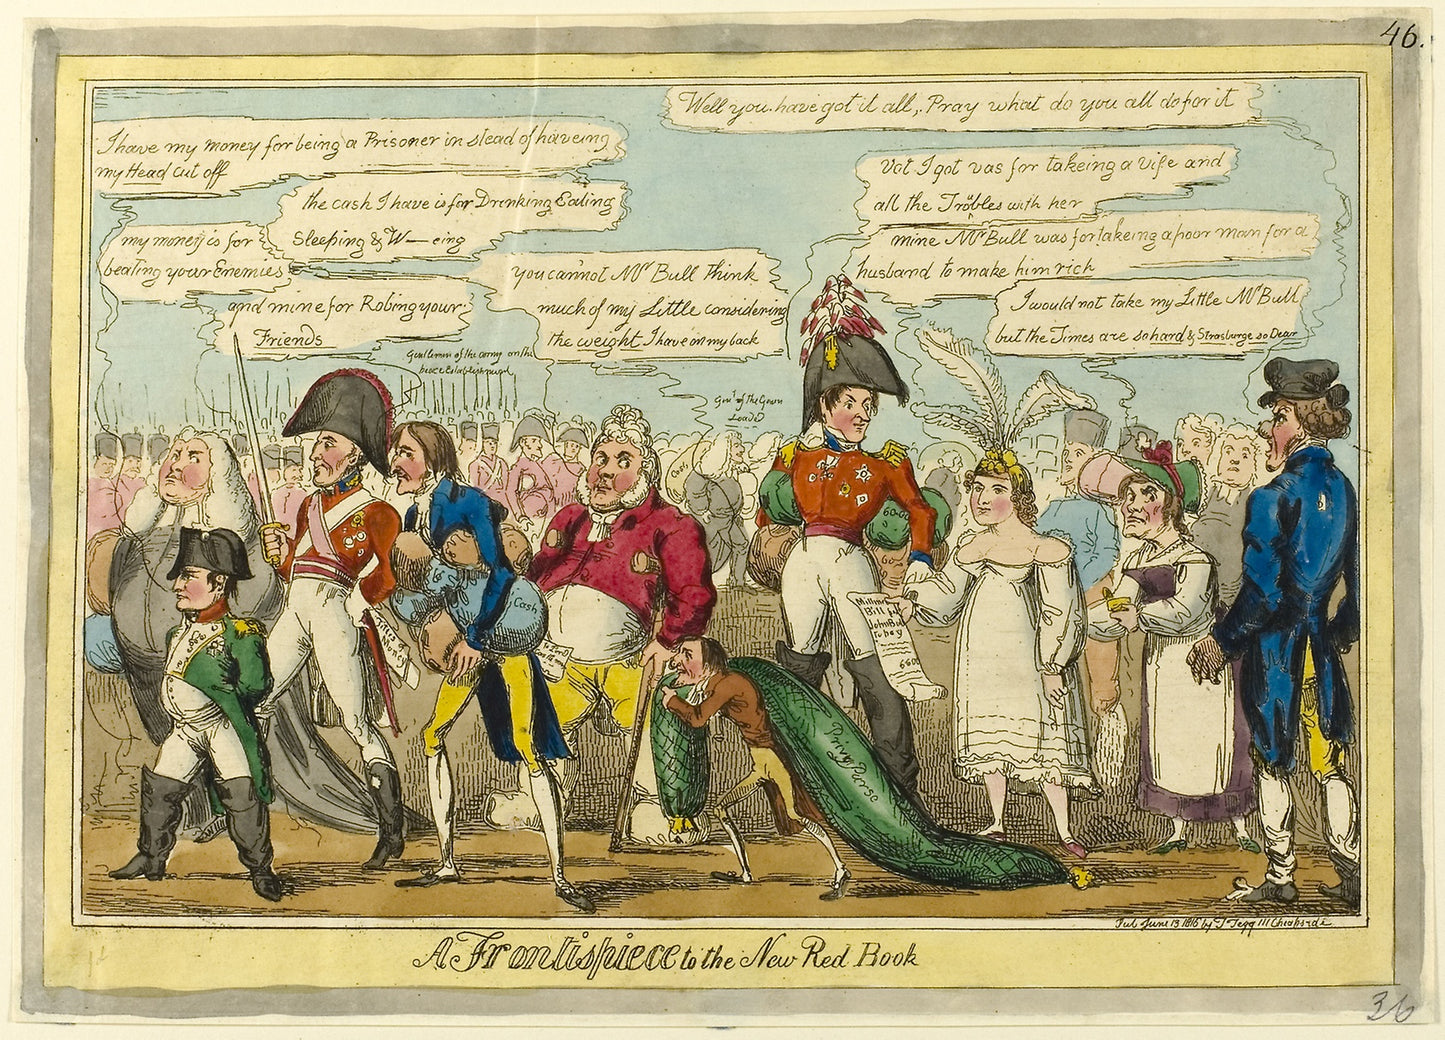 46.
Well you have got it all, Pray what do you all do for it
I have my money for being a Prisoner in stead of haveing
my Head cut off
the cash I have is for Drinking Eating
Sleeping & W—eing
my money is for
beating your Enemies
and mine for Robing your
Friends
you cannot Mr Bull think
much of my Little considering
the weight I have on my back
Vot I got vas for takeing a Vife and
all the Trobles with her
mine Mr Bull was for takeing a poor man for a
husband to make him rich
I would not take my Little Mr Bull
but the Times are so hard & Strasburge so Dear
Gentlemen of the army on the
peace Establishment
Genl of the Gown
Loaded
Cash
60-00
60-
Bill for
John Bull
to pay
6600
Privy Purse
Pub June 13 1816 by T Tegg 111 Cheapside
A Frontispiece to the New Red Book
36